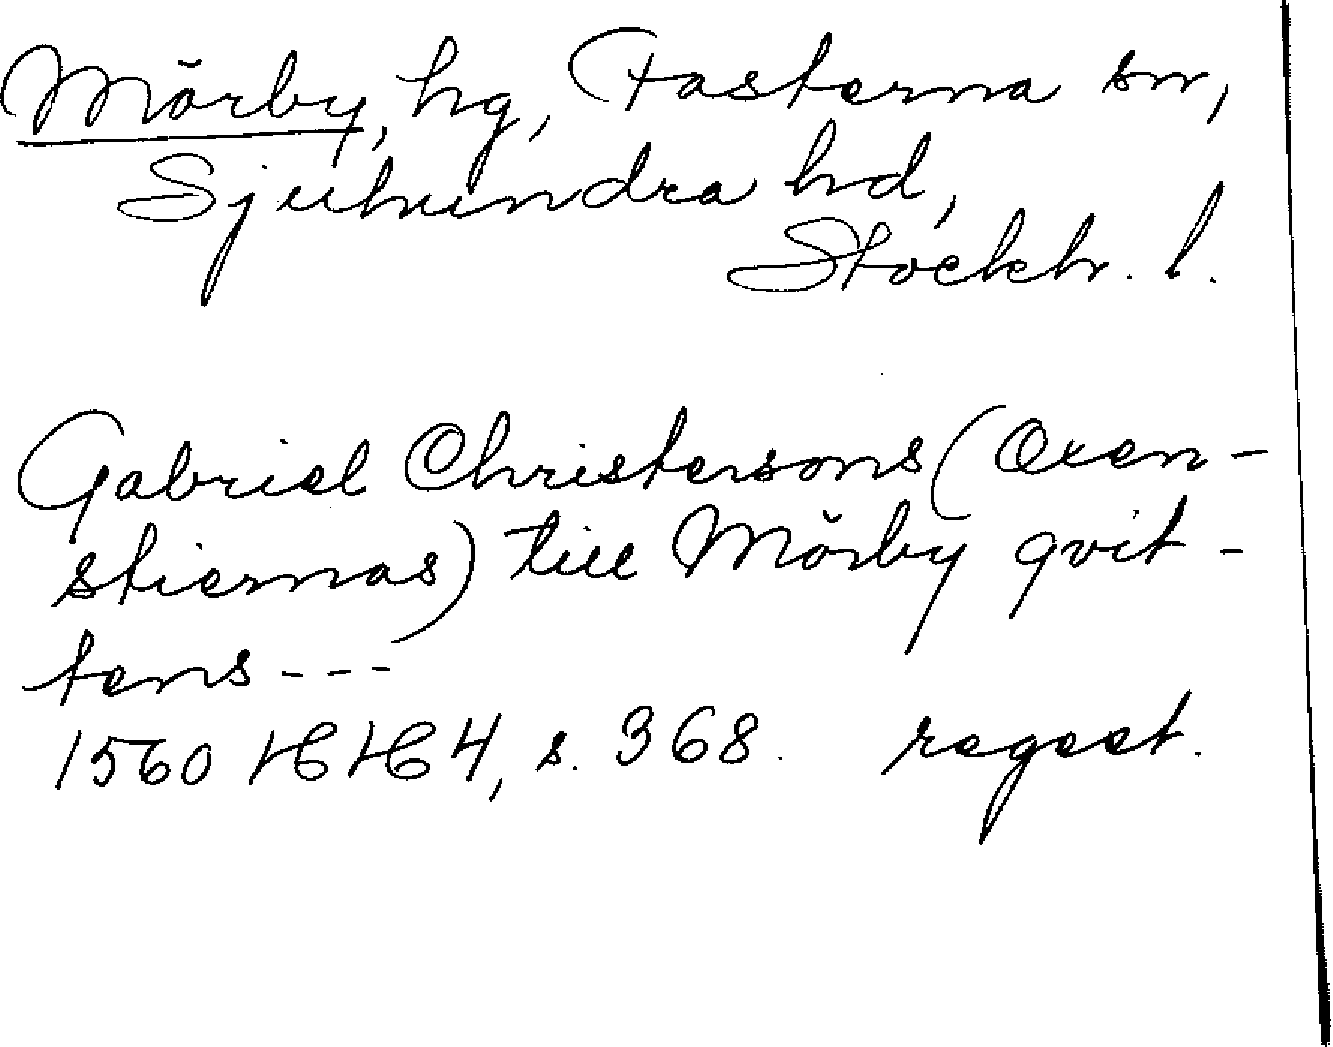 Mörby, hg, Fasterna sn,
Sjuhundra hd,
Stockh. l.
Gabriel Christersons (Oxen-
stiernas) till Mörby qvit-
tens---
1560 HH 4, s. 368. regest.